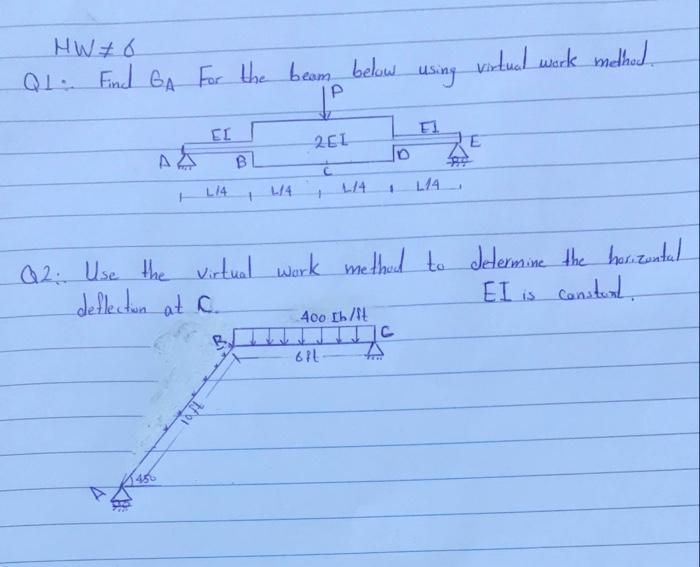 HW # 6
Q1: Find θA For the beam below using virtual work method.
P
EI 2EI EI
A B C D E
L/4 L/4 L/4 L/4
Q2: Use the virtual work method to determine the horizontal
deflection at C. EI is constant.
400 Ib/ft
B C
6ft
10 ft
A 45°